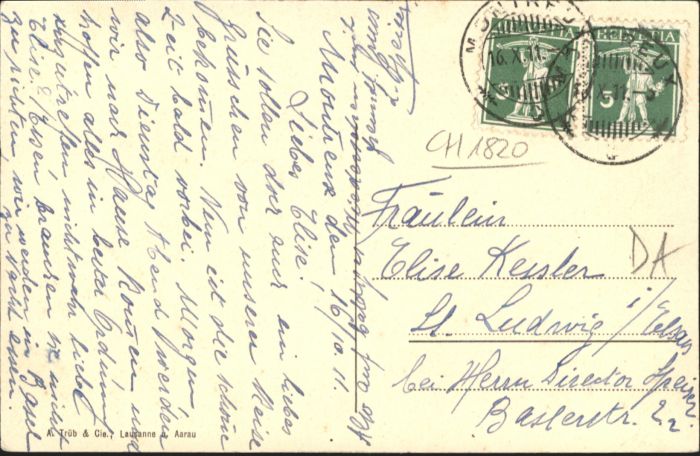 Montreux den 16/10. 11.
Liebe Elise!
Sie sollen doch auch ein liebes
Grüsschen von unserer Reise
bekommen. Nun ist die schöne
Zeit bald vorbei, Morgen
also Dienstag Abend werden
wir nach Hause kommen und
hoffen alles in bester Ordnung
anzutreffen
Elise, Essen brauchen sie nicht
zu richten, wir werden in Basel
zu Nacht essen.
MONTREUX
16.X.11.
HELVETIA
5
HELVETIA
5
CH 1820
DA
Fräulein
Elise Kessler
St. Ludwig i/Elsass
bei Herrn Director
Baslerstr. 22.
A. Trüb & Cie., Lausanne u. Aarau